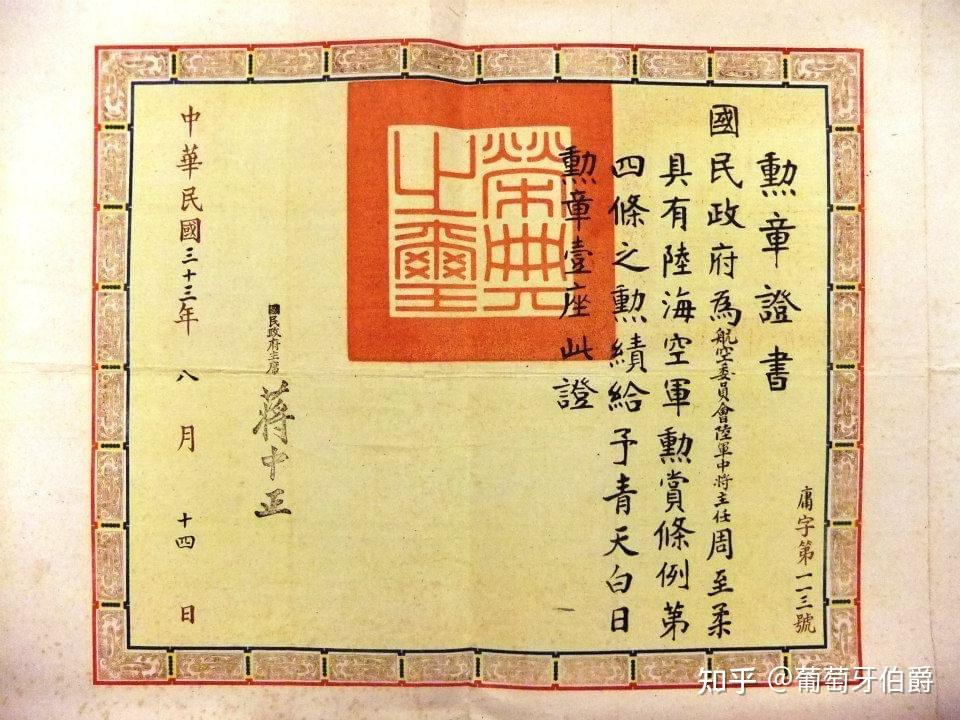 勳章證書
國民政府為航空委員會陸軍中將主任周至柔
具有陸海空軍勳賞條例第
四條之勳績給予青天白日
勳章壹座此證
庸字第一一三號
榮典之璽
國民政府主席
蔣中正
中華民國三十三年八月十四日
知乎 @葡萄牙伯爵